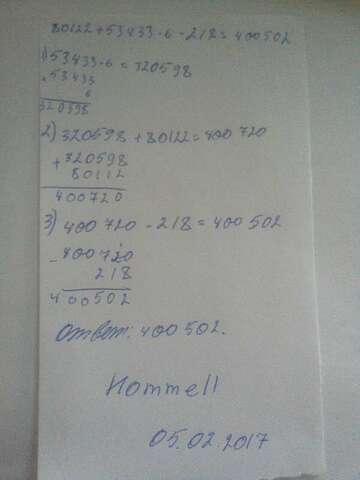 80122+53433·6-218=400502
1)53433·6=320598
×53433
6
320598
2)320598+80122=400720
+320598
80112
400720
3)400720-218=400502
-400720
218
400502
Ответ: 400502.
Hommell
05.02.2017